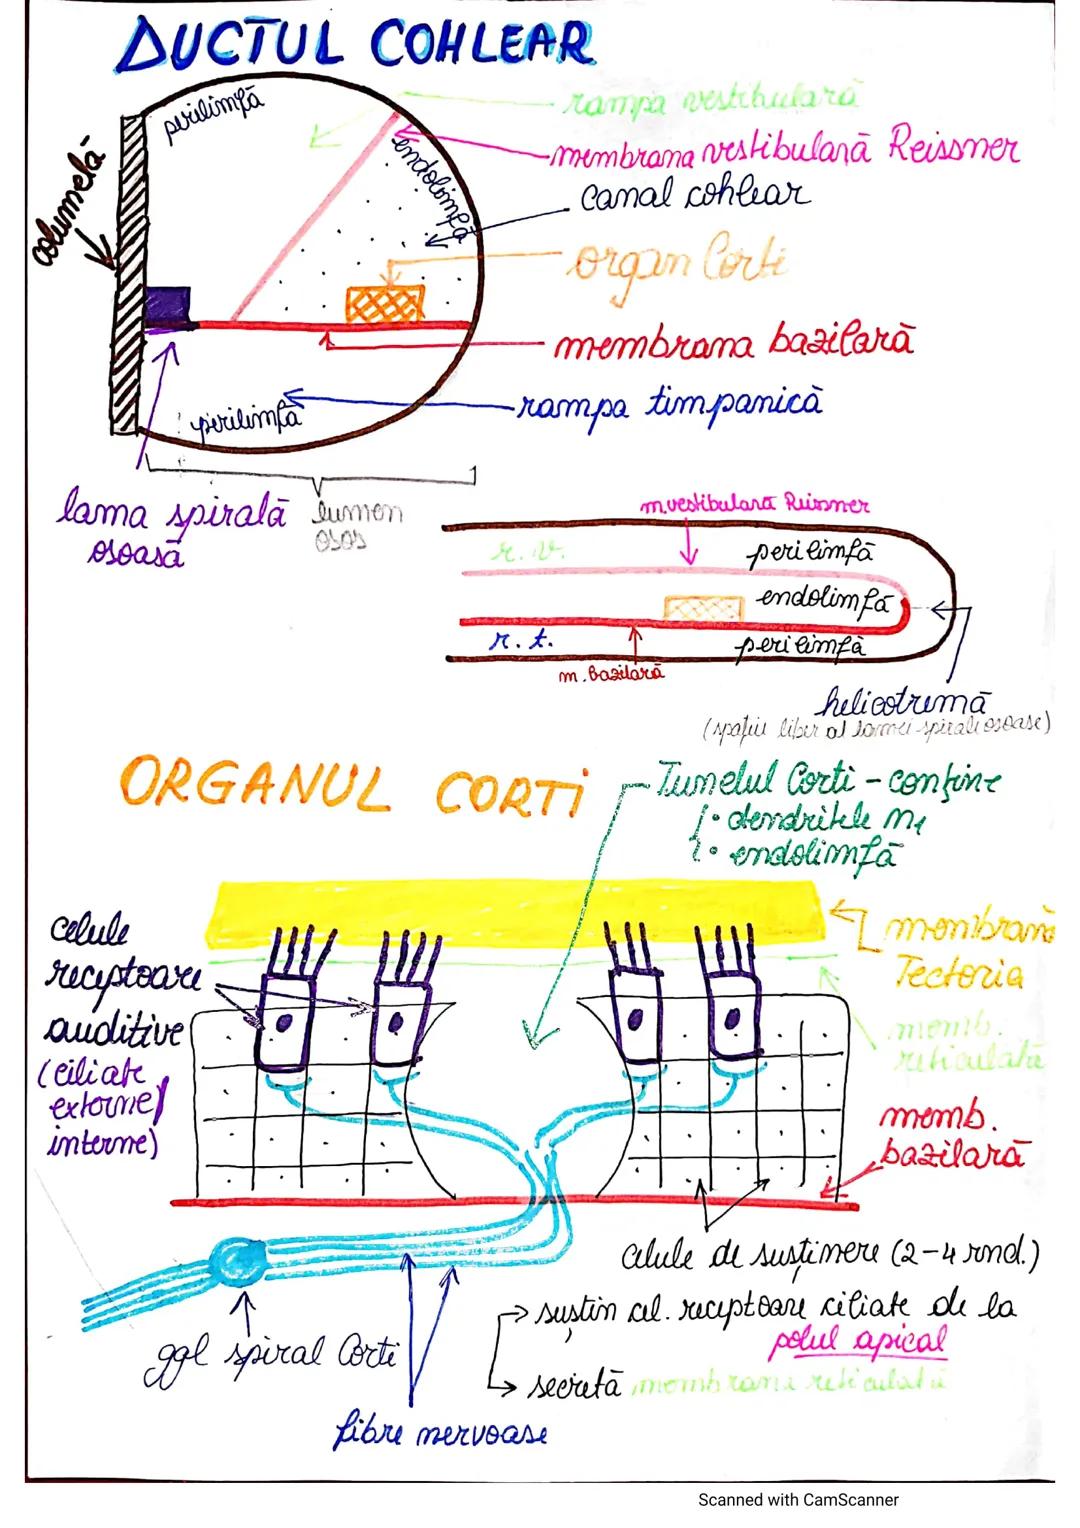 DUCTUL COHLEAR
perilimfă
rampa vestibulară
membrana vestibulară Reissner
endolimfă
canal cohlear
columelă
organ Corti
membrana bazilară
rampa timpanică
perilimfă
lama spirală
osoasă
lumen
osos
m.vestibulară Reissner
r. v.
perilimfă
endolimfă
r. t.
perilimfă
m. bazilară
helicotremă
(spațiu liber al lamei spirale osoase)
ORGANUL CORTI
Tunelul Corti - conține
• dendritele n1
• endolimfă
celule
receptoare
auditive
(ciliate
externe/
interne)
membrană
Tectoria
memb.
reticulată
memb.
bazilară
celule de susținere (2-4 rnd.)
→ susțin cel. receptoare ciliate de la
polul apical
→ secretă membrana reticulată
ggl spiral Corti
fibre nervoase
Scanned with CamScanner